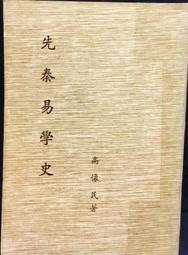 先秦易學史
高懷民著